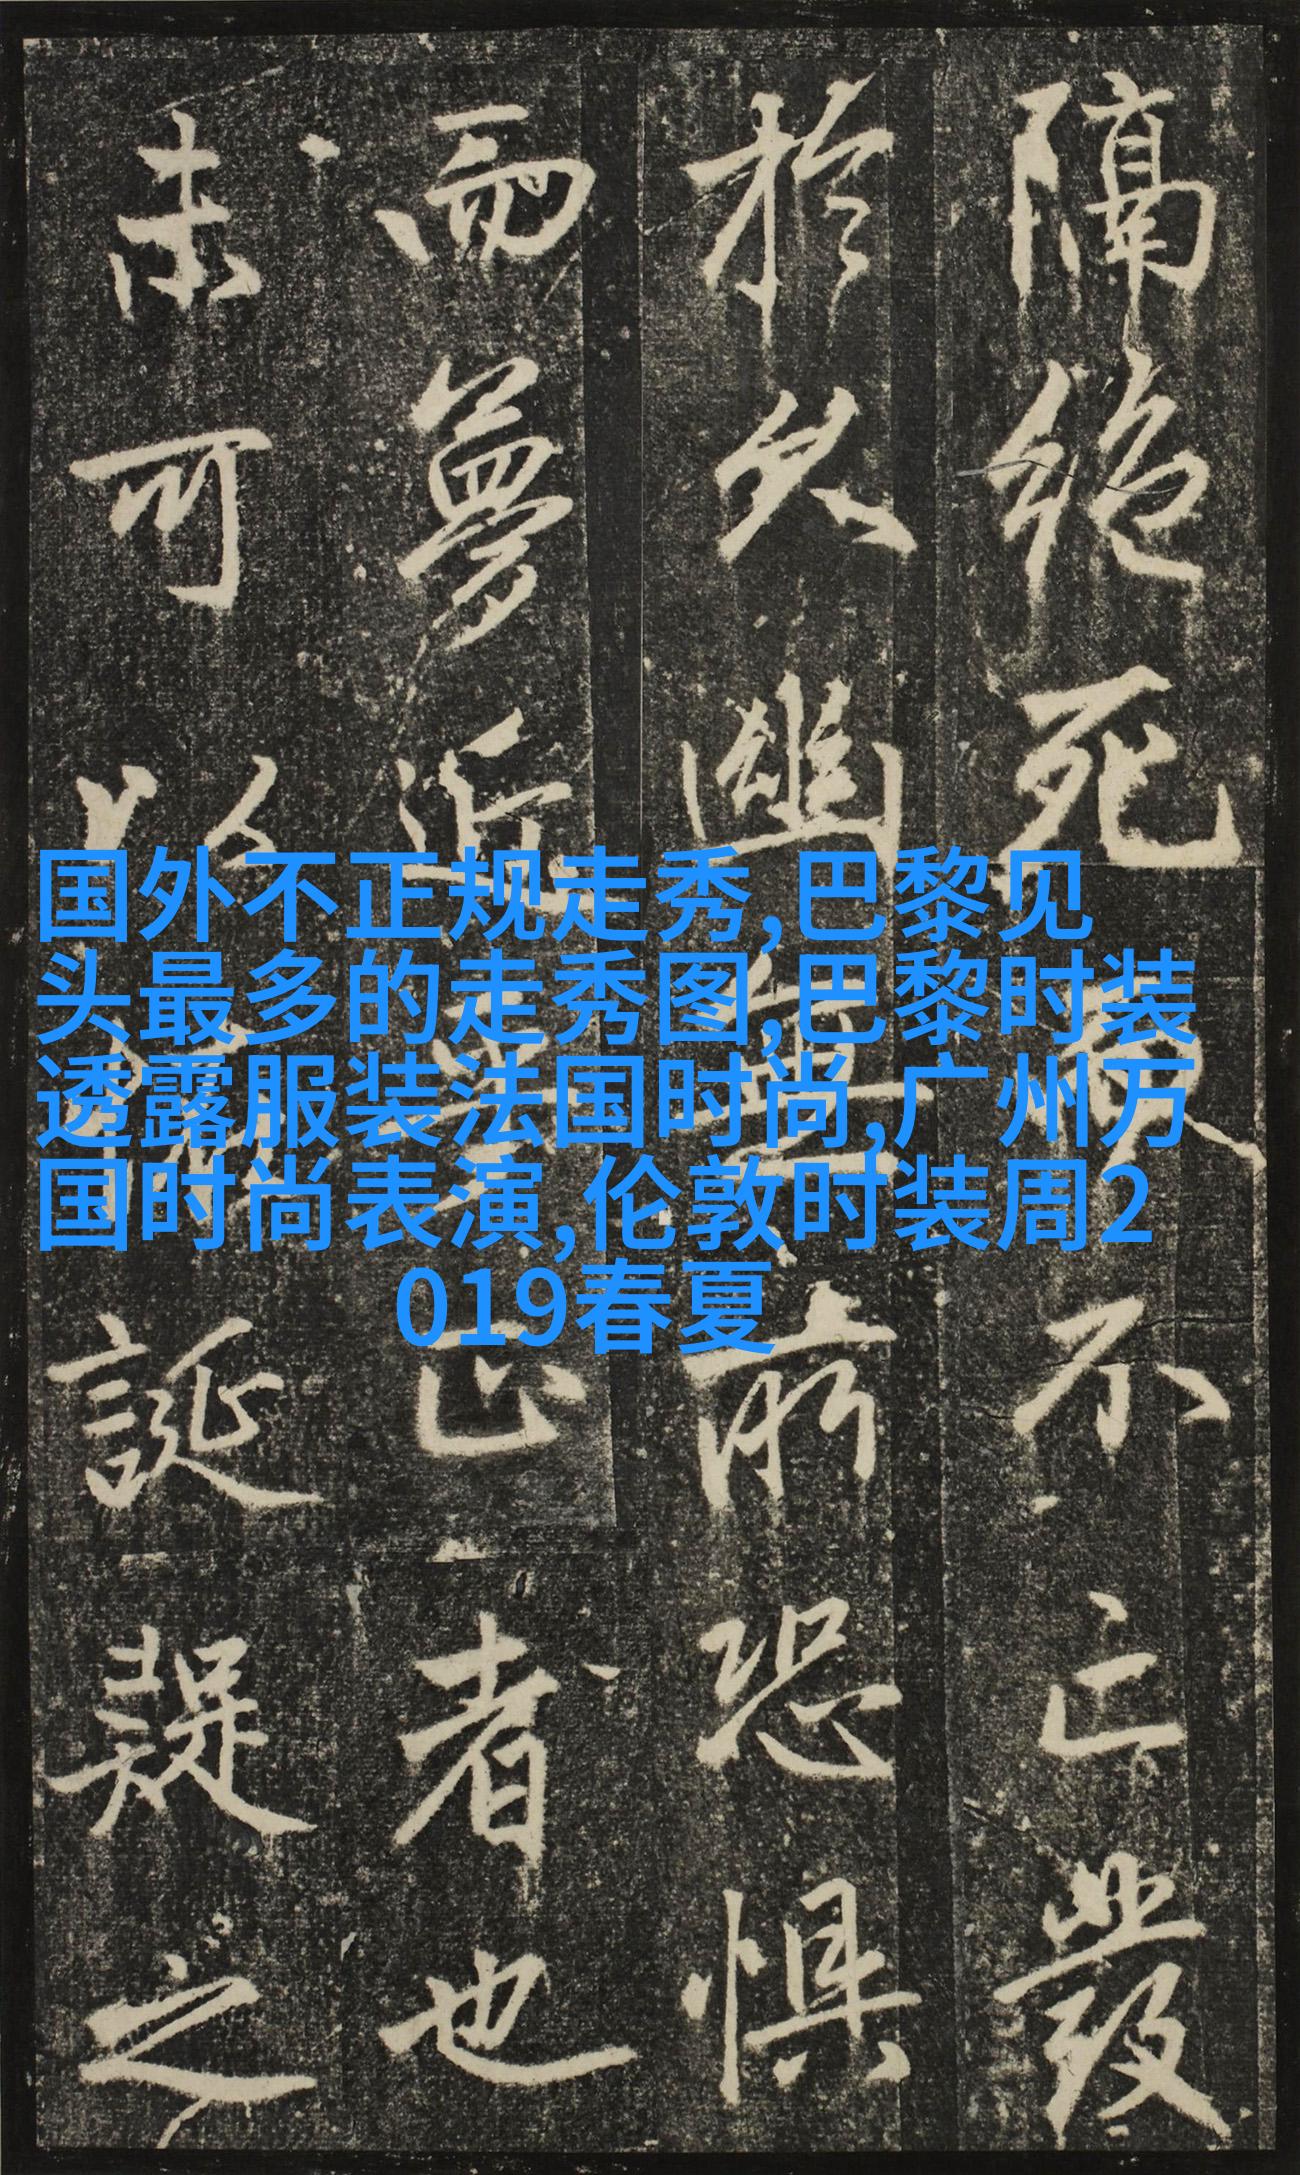 隔絕死不亡發
於久幽所恐懼
而夢者也
未可以誕疑之
国外不正规走秀,巴黎见
头最多的走秀图,巴黎时装
透露服装法国时尚,广州万
国时尚表演,伦敦时装周2
019春夏